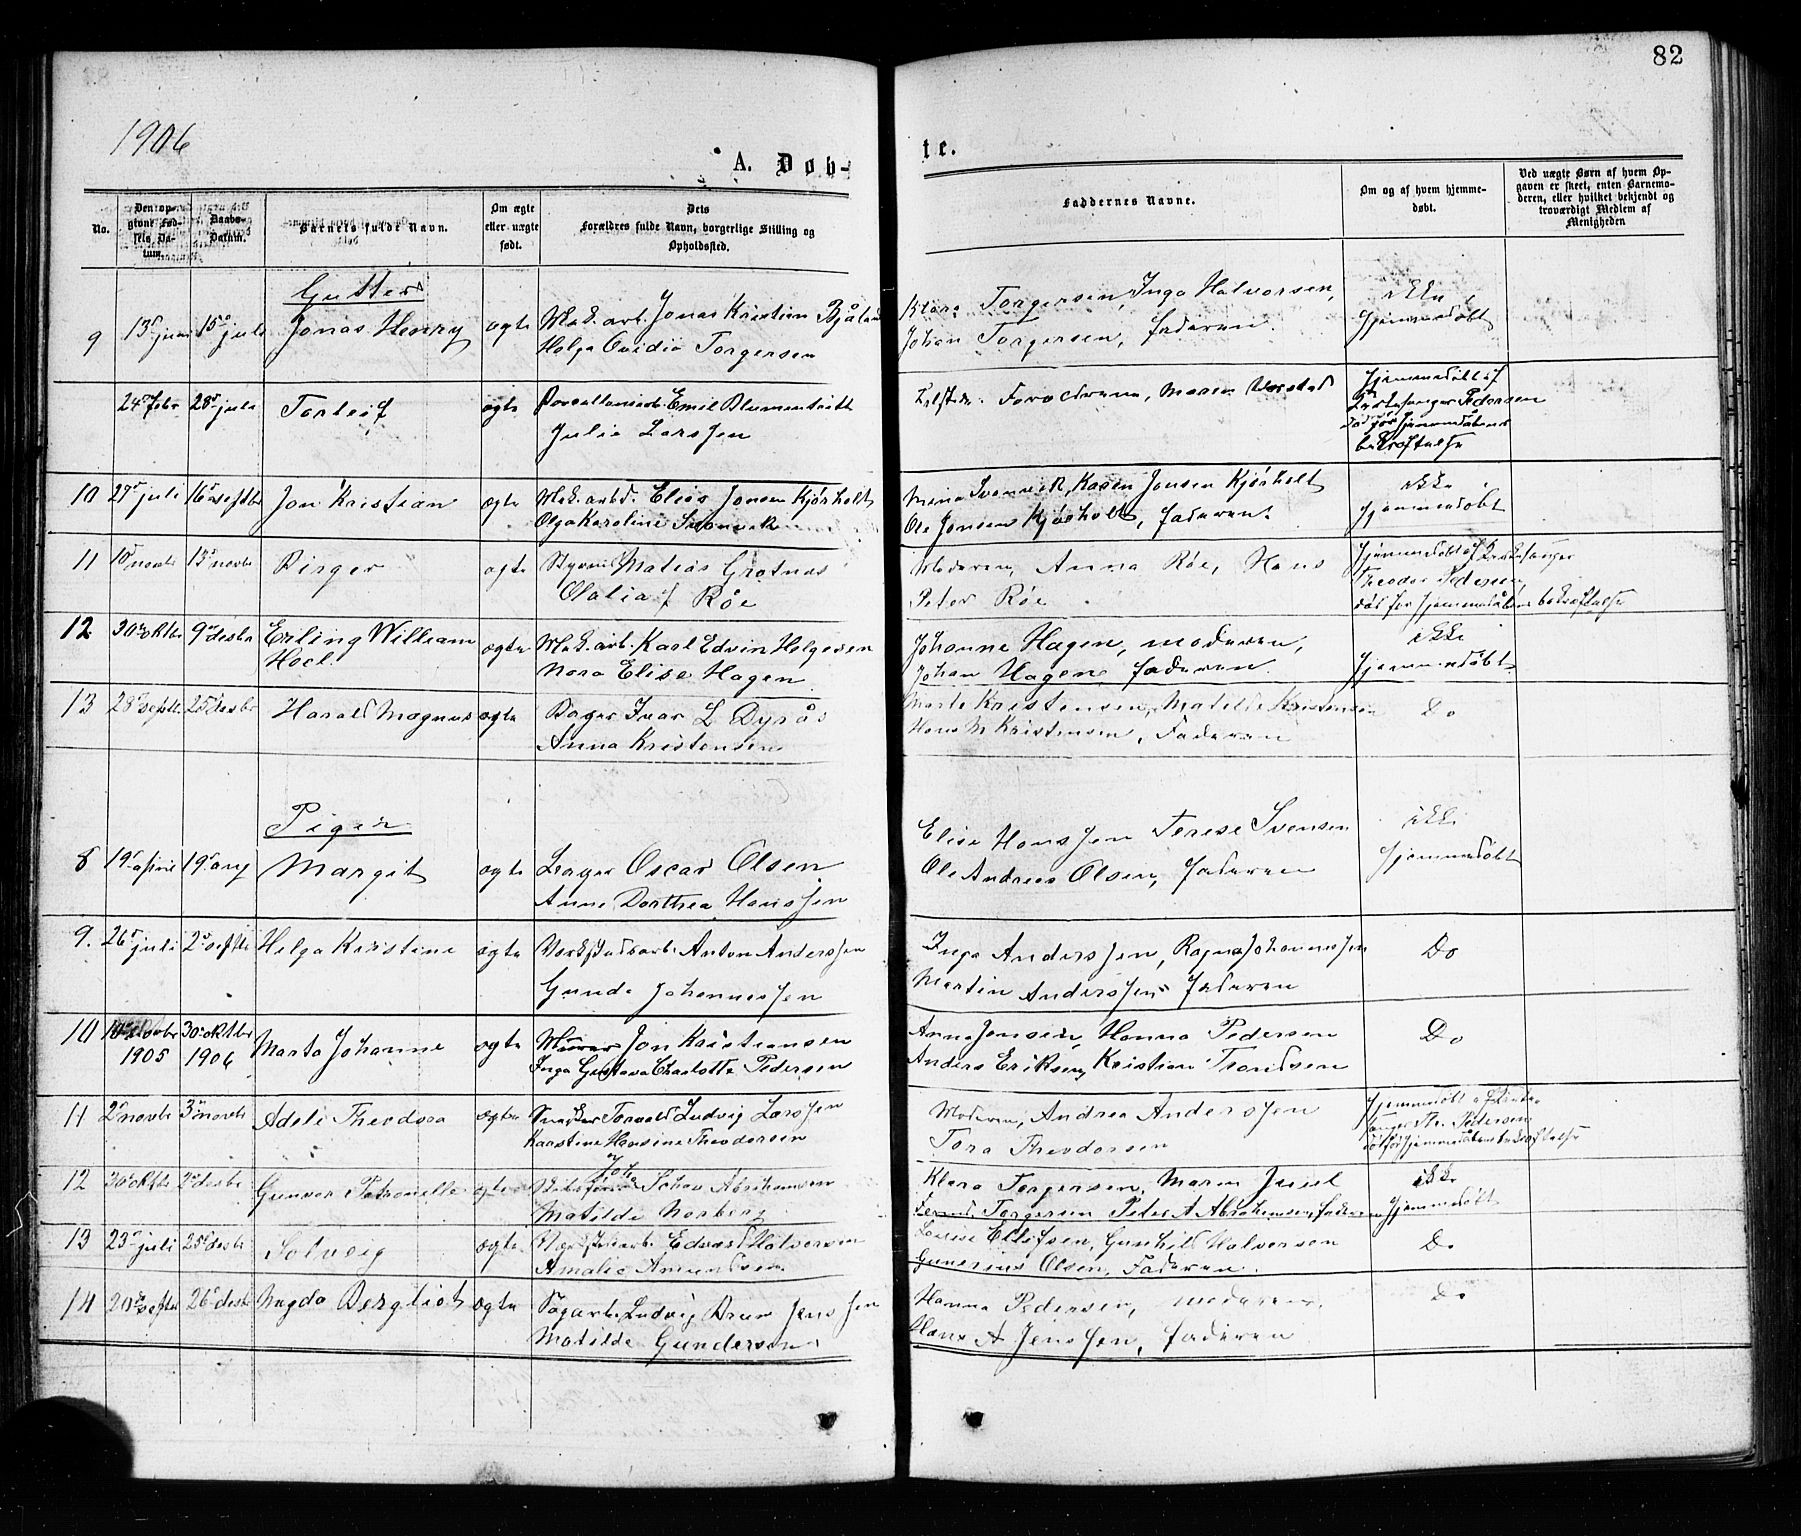 82
1906
A. Døb-
te.
No.
Den op-
givne Fød-
sels Da-
tum.
Daabs-
Datum.
Barnets fulde Navn.
Om ægte
eller uægte
født.
Dets
Forældres fulde Navn, borgerlige Stilling og
Opholdssted.
Faddernes Navne.
Om og af hvem hjemme-
døbt.
Ved uægte Børn af hvem Op-
gaven er skeet, enten Barnemo-
deren, eller hvilket bekjendt og
troværdigt Medlem af
Menigheden
Gutter
9 13d juni 15d juli Jonas Henry ægte Mek. arb. Jonas Kristian Bjåland
Helga Ovidia Torgersen
Klara Torgersen, Inga Halvorsen,
Johan Torgersen, faderen
ikke
hjemmedøbt
24d febr 28d juli Torleif ægte Porcellensarb. Emil Blumentritt
Julie Larssen
Forældrene, Maren
hjemmedøbt af
Pedersen
død før hjemmedåbens
bekræftelse
10 27d juli 16d septbr Jon Kristian ægte Mek. arbd. Elias Jonsen Kjørholt
Olga Karoline Svenvik
Mina Svenvik, Karen Jonsen Kjørholt
Ole Jonsen Kjørholt, faderen.
ikke
hjemmedøbt
11 10d novbr 13d novbr Birger ægte Styrmd Matias Grotnes
Olalia f Røe
Moderen, Anna Røe, Hans
Peter Røe
hjemmedøbt af Kirkesanger
Theodor Pedersen,
død før hjemmedåbens bekræftelse
12 30d oktbr 9d desbr Erling William
Hoel.
ægte Mek. arb. Karl Edvin Helgesen
Nora Elise Hagen
Johanne Hagen, moderen,
Johan Hagen, faderen
ikke
hjemmedøbt
13 28d septbr 25d desbr Harald Magnus ægte Bager Ivar L Dyrås
Anna Kristensen
Marte Kristensen, Matilde Kristensen
Hans M Kristensen, Faderen
Do
Piger
8 19d april 19d aug Margit ægte Oscar Olsen
Anne Dorthea Hanssen
Elise Hanssen Terese Svensen
Ole Andreas Olsen, faderen
ikke
hjemmedøbt
9. 26d juli 2d septbr Helga Kristine ægte Verkstedsarb. Anton Anderssen
Gunda Johannessen
Inga Anderssen, Ragna Johannessen
Martin Anderssen, faderen
Do
10 10d novbr 30d oktbr
1905 1906 Marta Johanne ægte Murer Jon Kristiansen
Inga Gustava Charlotte Pedersen
Anna Jensen, Hanna Pedersen
Anders Eriksen, Kristian Trondsen
Do
11 2d novbr 3d novbr Adele Theodora ægte Snedker Torvald Ludvig Larssen
Karstine Hansine Theodorsen
Moderen, Andrea Anderssen
Tora Theodorsen
hjemmedøbt af Kirke-
sanger Th. Pedersen,
død før hjemmedåbens bekræftelse
12 30d oktbr 2d desbr Gunvor Petronelle ægte Johan Abrahamsen
Matilde Norberg
Klara Torgersen, Maren Juul
Torgersen Peter A Abrahamsen, faderen
ikke
hjemmedøbt
13 23d juli 25d desbr Solveig ægte Edvard Halvorsen
Amalie Amundsen
Lovise Ellefsen, Gunhild Halvorsen
Gunerius Olsen, Faderen.
Do
14 20d septbr 26d desbr Magda Bergliot ægte Sagarb. Ludvig Brun Jenssen
Matilde Gundersen
Hanna Pedersen, moderen,
Hans A Jenssen, faderen
Do